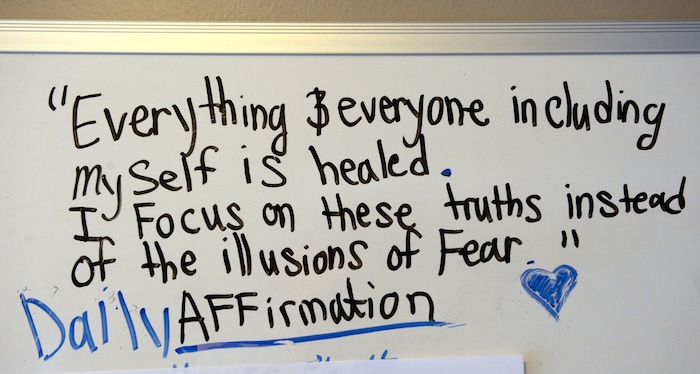 "Everything & everyone including
myself is healed.
I Focus on these truths instead
of the illusions of Fear."
Daily AFFirmation